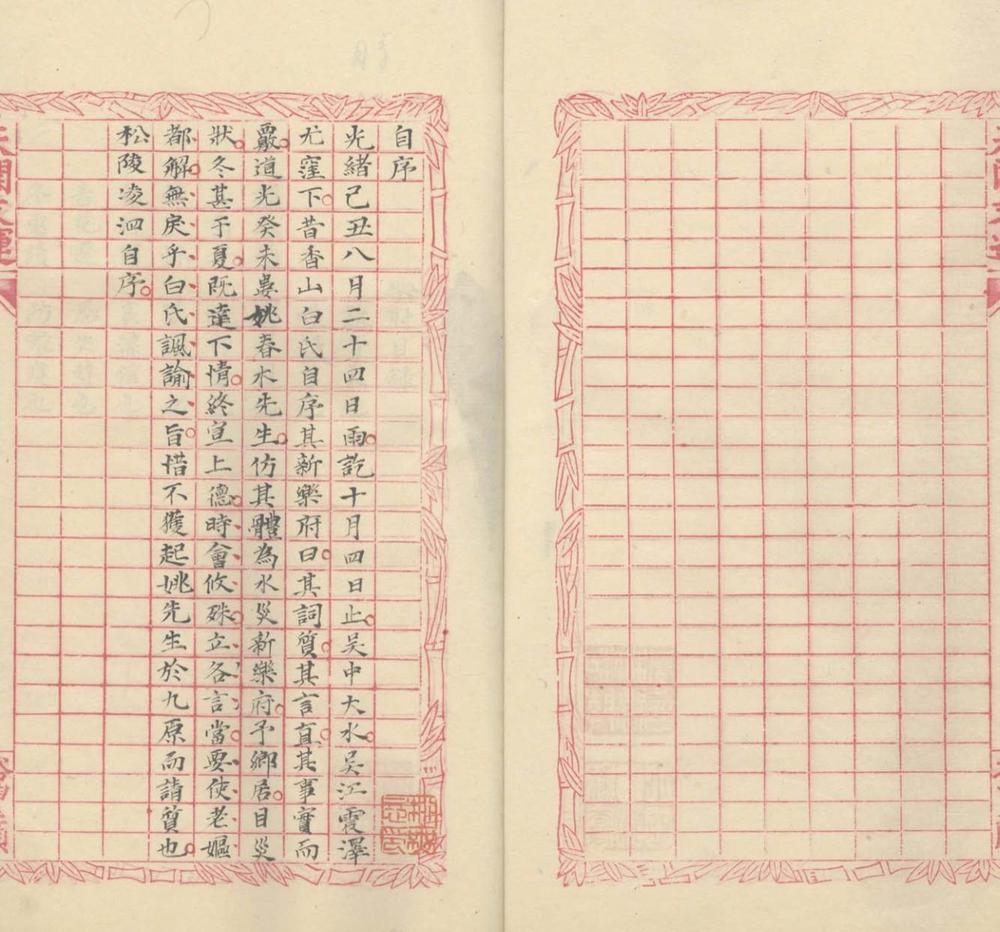 自序
光緒己丑八月二十四日雨訖十月四日止吳中大水吳江震澤
尤窪下昔香山白氏自序其新樂府曰其詞質其言直其事實而
覈道光癸未婁姚春水先生仿其體為水災新樂府予鄉居目災
狀冬甚于夏既達下情終宣上德時會攸殊立各言當要使老嫗
都解無戾乎白氏諷諭之旨惜不獲起姚先生於九原而請質也
松陵凌泗自序